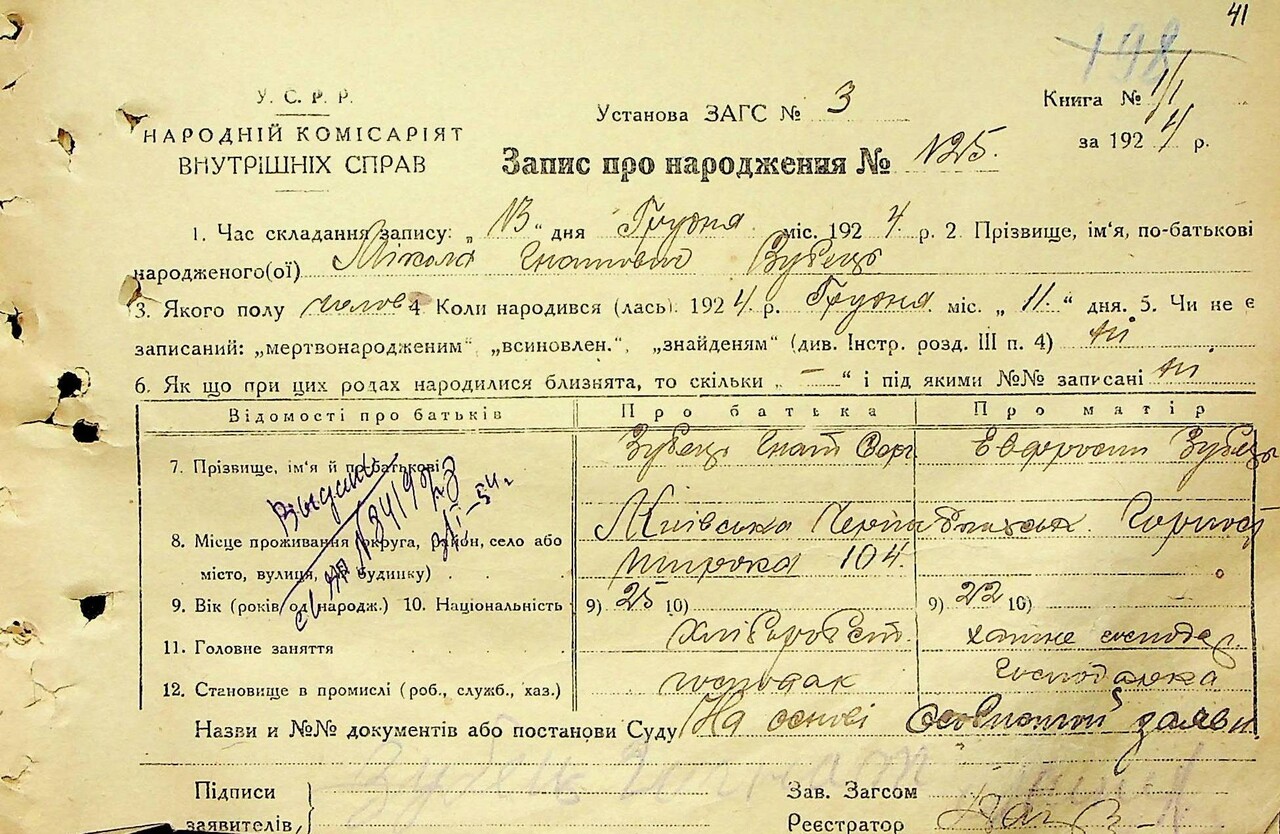 41
198
У. С. Р. Р.
НАРОДНІЙ КОМІСАРІЯТ
ВНУТРІШНІХ СПРАВ
Установа ЗАГС № 3
Книга № 1/1
за 1924 р.
Запис про народження № 125.
1. Час складання запису: „ 13 “ дня Грудня міс. 1924 р. 2. Прізвище, ім'я, по-батькові
народженого(ої) Мікола Гнатович Зубець
3. Якого полу челов 4 Коли народився (лась) 1924 р. Грудня міс. „ 11. “ дня. 5. Чи не є
записаний: „мертвонародженим“, „всиновлен.“, „знайденям“ (див. Інстр. розд. III п. 4) ні
6. Як що при цих родах народилися близнята, то скільки „ – “ і під якими №№ записані ні
Відомості про батьків Про батька Про матір
7. Прізвище, ім'я й по-батькові Зубець Гнат Зубець
8. Місце проживання (округа, район, село або Київська
місто, вулиця, № будинку) Широка 104.
9. Вік (років од народж.) 10. Національність 9) 25 10) 9) 22 10)
11. Головне заняття Хлібороб хатне господар.
12. Становище в промислі (роб., служб., хаз.) господар господарка
Назви и №№ документів або постанови Суду На основі особистої заяви
Підписи
заявителів,
Зав. Загсом
Реєстратор